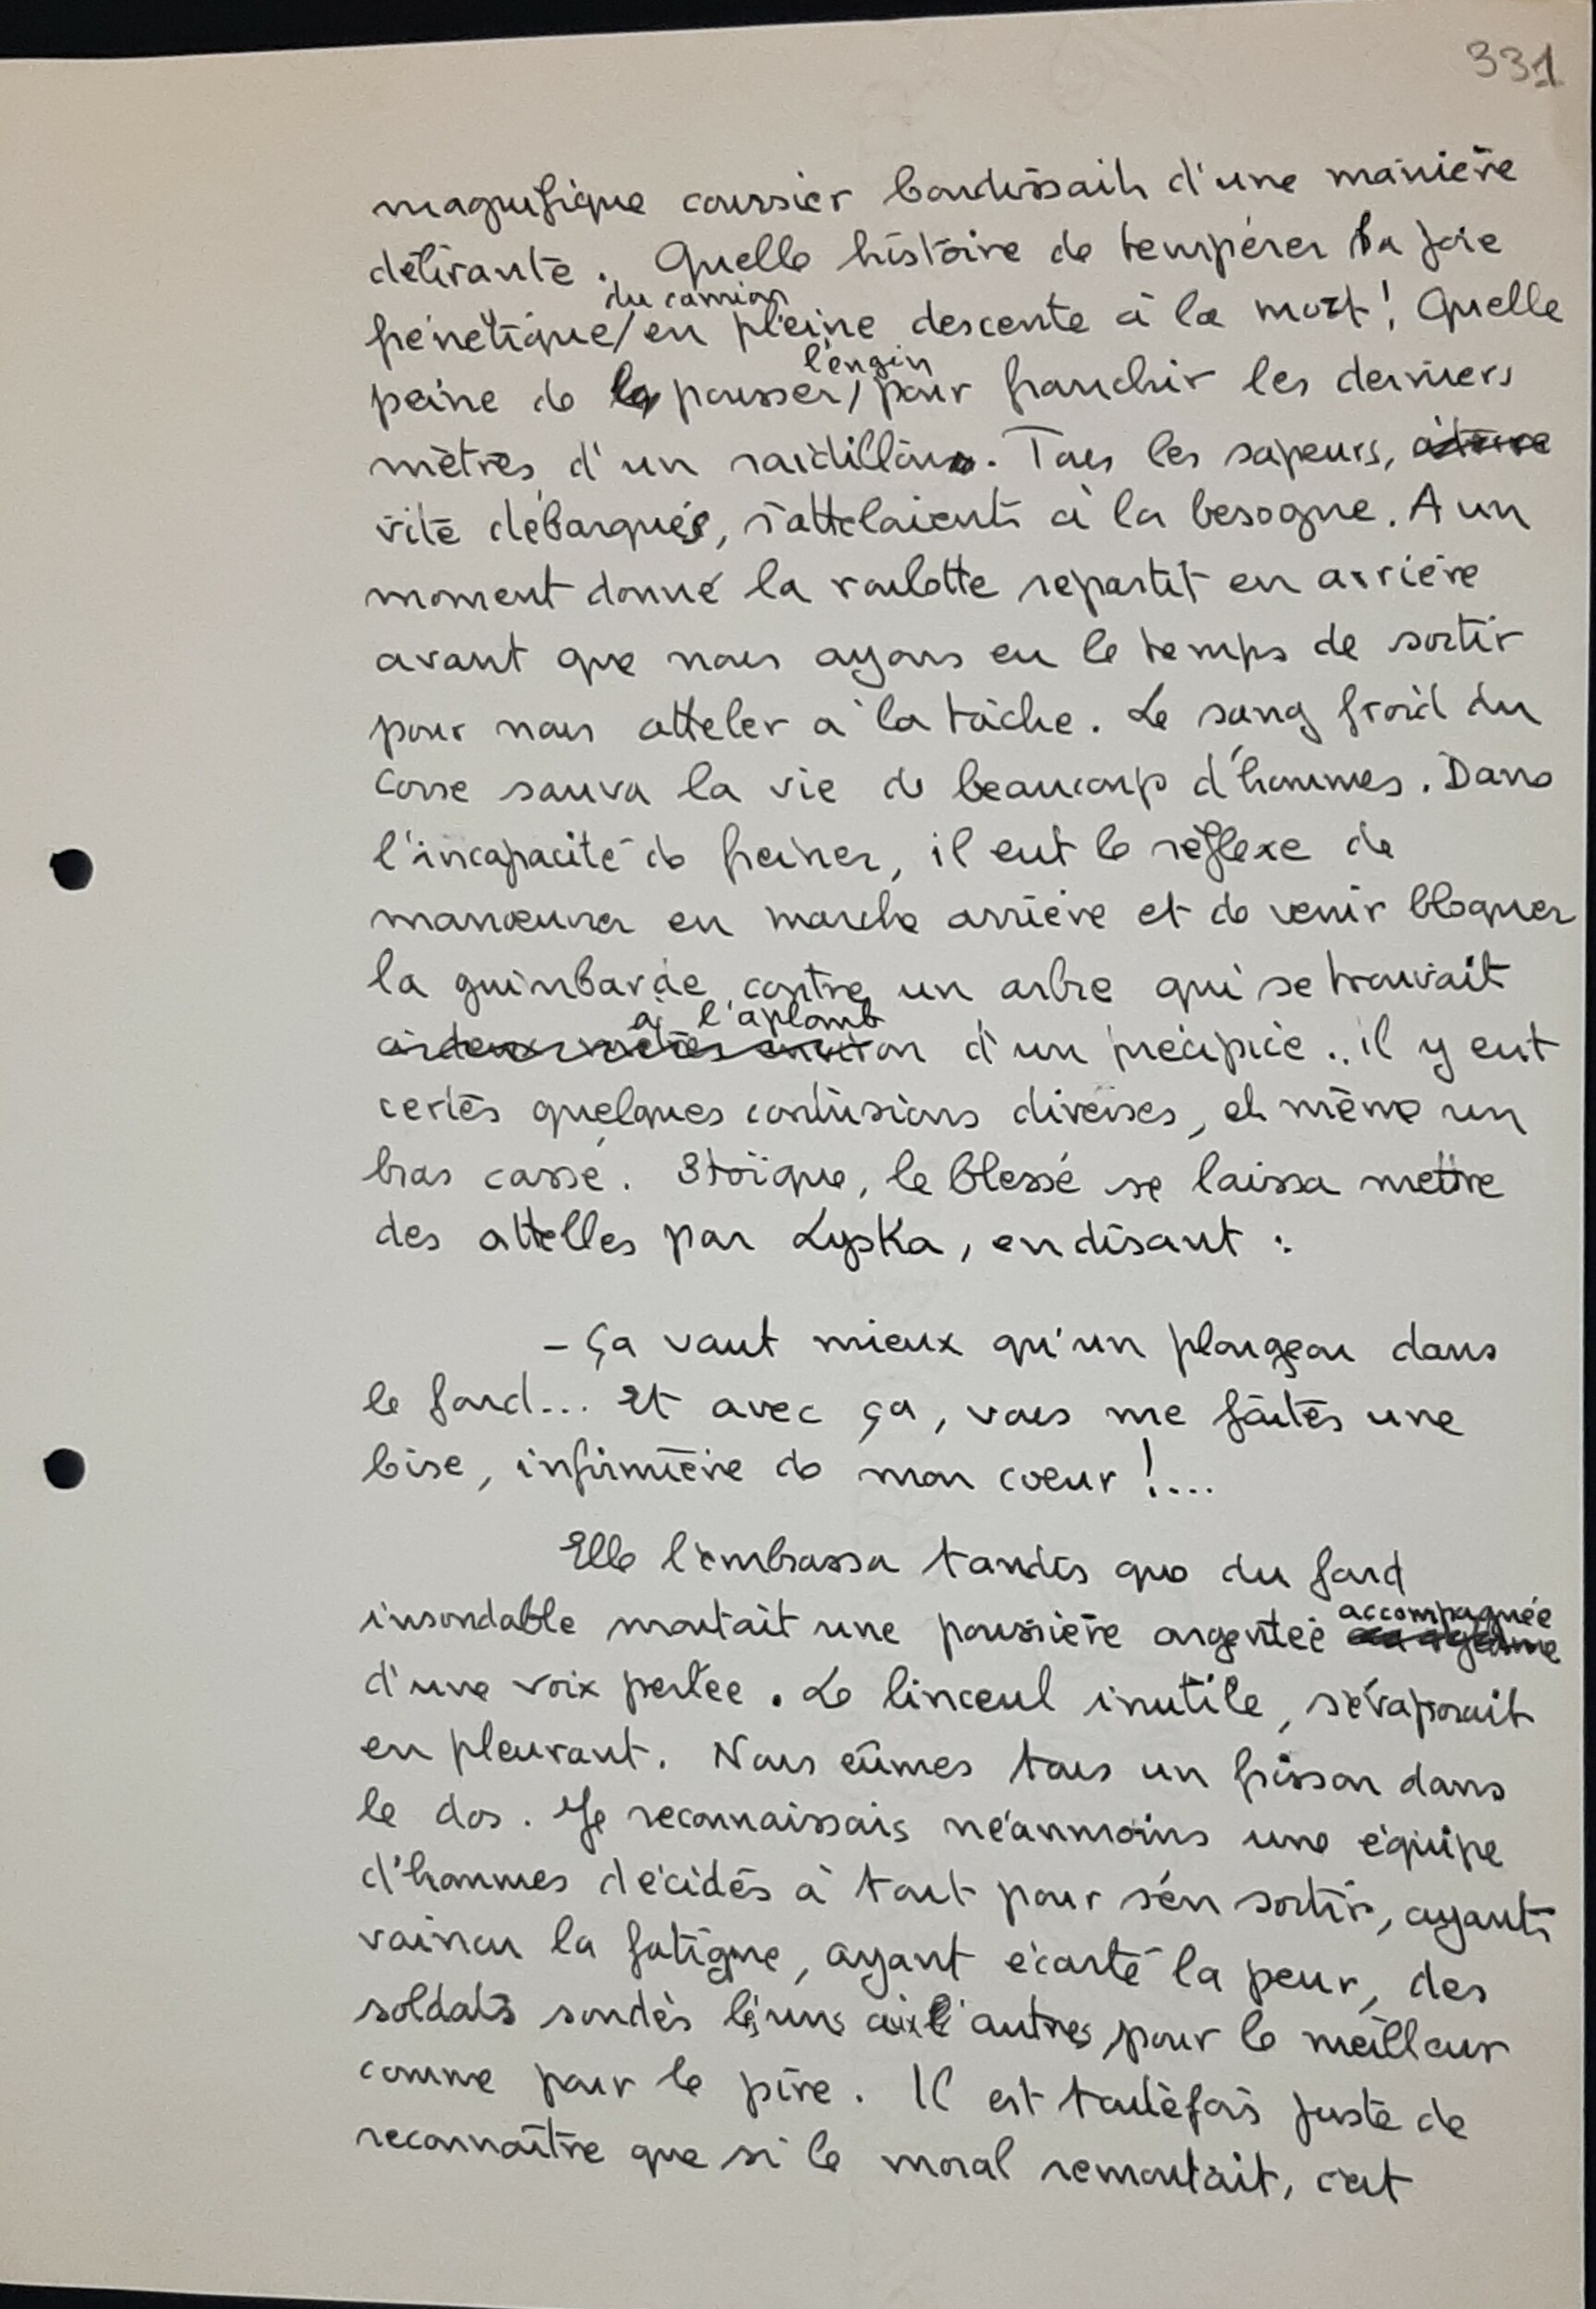 331
magnifique coursier bondissait d'une manière
délirante. Quelle histoire de tempérer la joie
frénétique/ du camion en pleine descente à la mort! Quelle
peine de pousser, l'engin pour franchir les derniers
mètres d'un raidillon. Tous les sapeurs,
vite débarqués, s'attelaient à la besogne. A un
moment donné la roulotte repartit en arrière
avant que nous ayons eu le temps de sortir
pour nous atteler à la tâche. Le sang froid du
Corse sauva la vie de beaucoup d'hommes. Dans
l'incapacité de freiner, il eut le réflexe de
manœuvrer en marche arrière et de venir bloquer
la guimbarde contre un arbre qui se trouvait
à l'aplomb d'un précipice.. il y eut
certes quelques contusions diverses, et même un
bras cassé. Stoïque, le blessé se laissa mettre
des attelles par Lyska, en disant :
- Ça vaut mieux qu'un plongeon dans
le fond... Et avec ça, vous me faîtes une
bise, infirmière de mon coeur !....
Elle l'embrassa tandis que du fond
insondable montait une poussière argentée accompagnée
d'une voix perlée. Le linceul inutile, s'évaporait
en pleurant. Nous eûmes tous un frisson dans
le dos. Je reconnaissais néanmoins une équipe
d'hommes décidés à tout pour s'en sortir, ayants
vaincu la fatigue, ayant écarté la peur, des
soldats soudés les uns aux autres pour le meilleur
comme pour le pire. Il est toutefois juste de
reconnaître que si le moral remontait, c'est